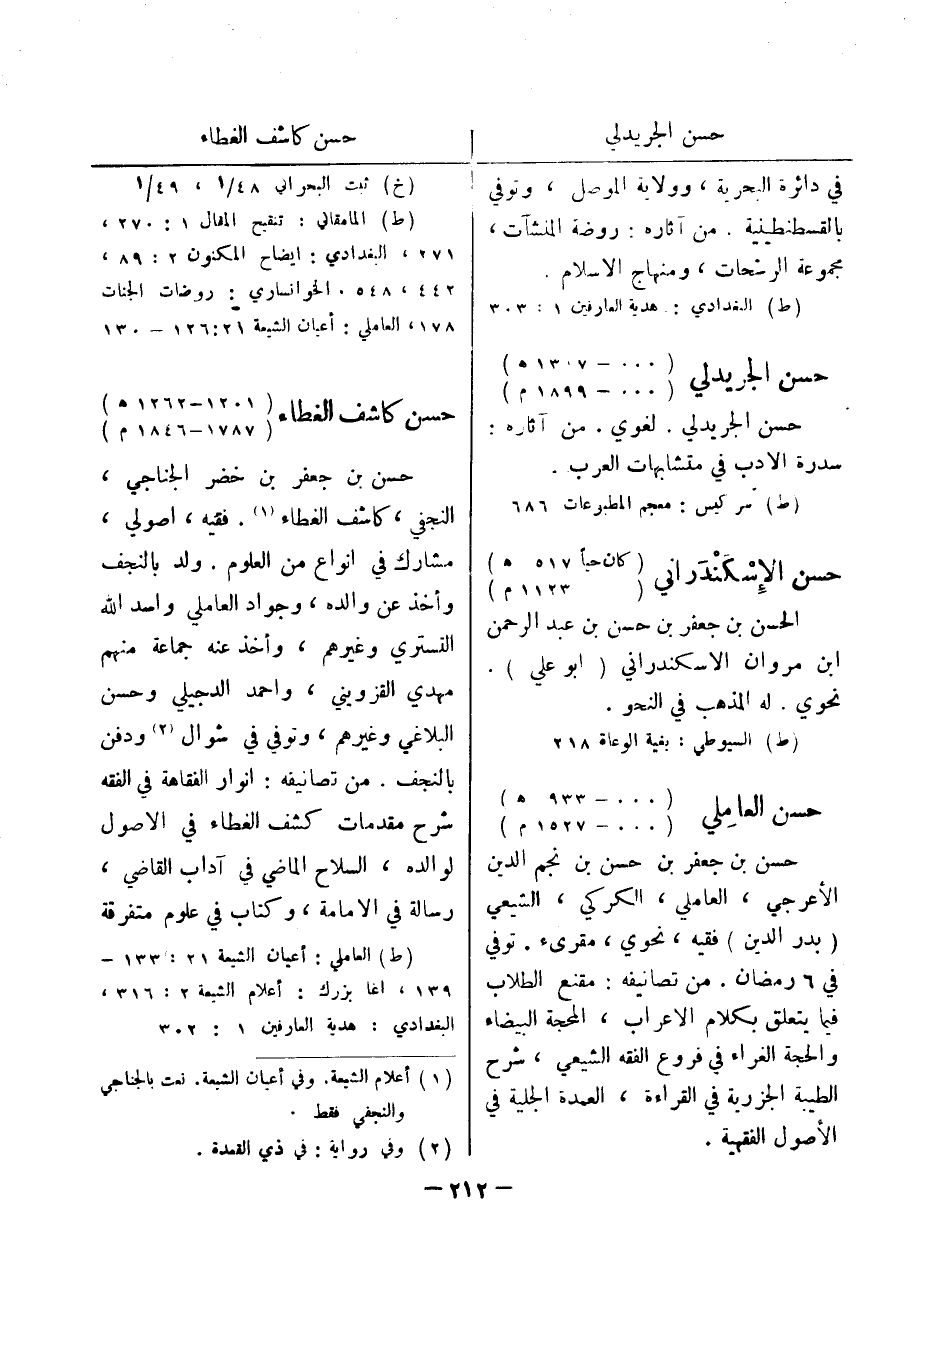 حسن الجريدلي
حسن كاشف الغطاء
في دائرة البحرية ، وولاية الموصل ، وتوفي
بالقسطنطينية . من آثاره : روضة المنشآت ،
مجموعة الرشحات ، ومنهاج الاسلام .
(ط) البغدادي : هدية العارفين ١ : ٣٠٣
حسن الجريدلي ( ٠٠٠ - ١٣٠٧ ه )
( ٠٠٠ - ١٨٩٩ م )
حسن الجريدلي . لغوي . من آثاره :
سدرة الادب في متشابهات العرب .
(ط) سركيس : معجم المطبوعات ٦٨٦
حسن الإِسْكَنْدَراني (كان حياً ٥١٧ ه )
( ١١٢٣ م )
الحسن بن جعفر بن حسن بن عبد الرحمن
ابن مروان الاسكندراني ( ابو علي ) .
نحوي . له المذهب في النحو .
(ط) السيوطي : بغية الوعاة ٢١٨
حسن العامِلي ( ٠٠٠ - ٩٣٣ ه )
( ٠٠٠ - ١٥٢٧ م )
حسن بن جعفر بن حسن بن نجم الدين
الأعرجي ، العاملي ، الكركي ، الشيعي
( بدر الدين ) فقيه ، نحوي ، مقرىء . توفي
في ٦ رمضان . من تصانيفه : مقنع الطلاب
فيما يتعلق بكلام الاعراب ، المحجة البيضاء
والحجة الغراء في فروع الفقه الشيعي ، شرح
الطيبة الجزرية في القراءة ، العمدة الجلية في
الأصول الفقهية .
(خ) ثبت البحراني ١/٤٨ ، ١/٤٩
(ط) المامقاني : تنقيح المقال ١ : ٢٧٠ ،
٢٧١ ، البغدادي : ايضاح المكنون ٢ : ٨٩ ،
٤٤٢ ، ٥٤٨ . الخوانساري : روضات الجنات
١٧٨، العاملي : أعيان الشيعة ٢١ : ١٢٦ - ١٣٠
حسن كاشف الغطاء ( ١٢٠١-١٢٦٢ ه )
( ١٧٨٧-١٨٤٦ م )
حسن بن جعفر بن خضر الجناجي ،
النجفي ، كاشف الغطاء (١) . فقيه ، اصولي ،
مشارك في انواع من العلوم . ولد بالنجف
وأخذ عن والده ، وجواد العاملي واسد الله
التستري وغيرهم ، وأخذ عنه جماعة منهم
مهدي القزويني ، واحمد الدجيلي وحسن
البلاغي وغيرهم ، وتوفي في شوال (٢) ودفن
بالنجف . من تصانيفه : انوار الفقاهة في الفقه
شرح مقدمات كشف الغطاء في الاصول
لوالده ، السلاح الماضي في آداب القاضي ،
رسالة في الامامة ، وكتاب في علوم متفرقة
(ط) العاملي : أعيان الشيعة ٢١ : ١٣٣ -
١٣٩ ، اغا بزرك : أعلام الشيعة ٢ : ٣١٦ ،
البغدادي : هدية العارفين ١ : ٣٠٢
(١) أعلام الشيعة. وفي أعيان الشيعة. نعت بالجناجي
والنجفي فقط .
(٢) وفي رواية : في ذي القعدة .
- ٢١٢ -